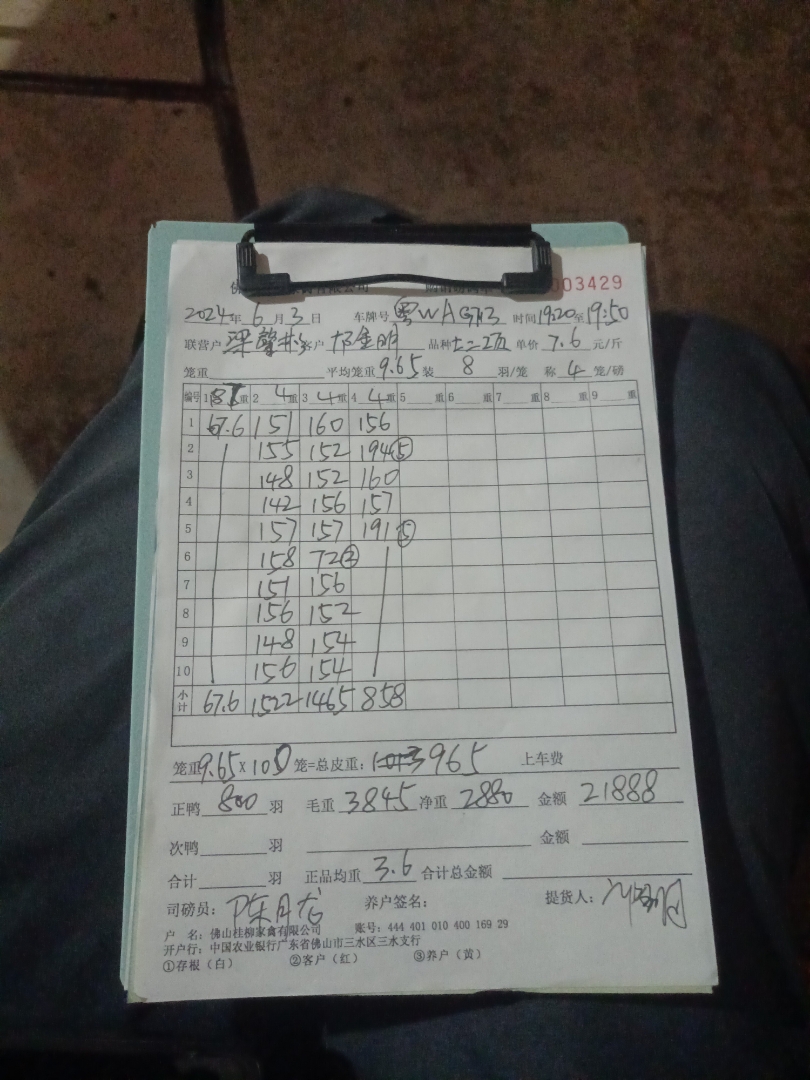 003429
2024年6月3日 车牌号 粤WAG 时间19:20至19:50
联营户 梁 客户 品种 单价 7.6 元/斤
笼重 平均笼重 9.65 装 8 羽/笼 称 4 笼/磅
编号 1 重 2 4 重 3 4 重 4 4 重 5 重 6 重 7 重 8 重 9 重
1 67.6 151 160 156
2 155 152 194⑤
3 148 152 160
4 142 156 157
5 157 157 191⑤
6 158 72②
7 151 156
8 156 152
9 148 154
10 156 154
小计 67.6 1522 1465 858
笼重9.65×100笼=总皮重: 965 上车费
正鸭 800 羽 毛重 3845 净重 2880 金额 21888
次鸭 羽 金额
合计 羽 正品均重 3.6 合计总金额
司磅员: 陈月 养户签名: 提货人:
户 名: 佛山桂柳家禽有限公司 账号: 444 401 010 400 169 29
开户行: 中国农业银行广东省佛山市三水区三水支行
①存根(白) ②客户(红) ③养户(黄)